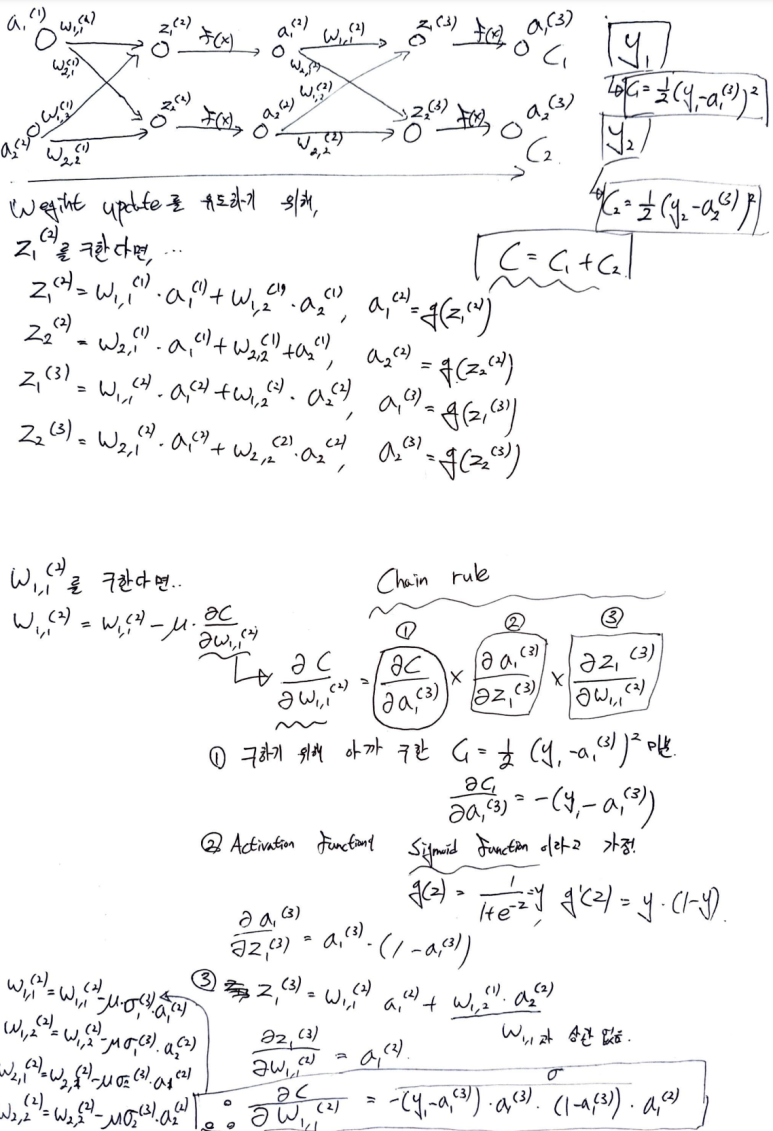 a₁⁽¹⁾ w₁,₁⁽¹⁾ z₁⁽²⁾ f(x) a₁⁽²⁾ w₁,₁⁽²⁾ z₁⁽³⁾ f(x) a₁⁽³⁾
w₂,₁⁽¹⁾ w₂,₁⁽²⁾ C₁ y₁
w₁,₂⁽¹⁾ w₁,₂⁽²⁾ C₁ = ½(y₁-a₁⁽³⁾)²
z₂⁽²⁾ f(x) a₂⁽²⁾ z₂⁽³⁾ f(x) a₂⁽³⁾ y₂
a₂⁽²⁾ w₂,₂⁽¹⁾ w₂,₂⁽²⁾ C₂
C₂ = ½(y₂-a₂⁽³⁾)²
Weight update를 유도하기 위해,
C = C₁ + C₂
z₁⁽²⁾를 구한다면, ...
z₁⁽²⁾ = w₁,₁⁽¹⁾ · a₁⁽¹⁾ + w₁,₂⁽¹⁾ · a₂⁽¹⁾, a₁⁽²⁾ = g(z₁⁽²⁾)
z₂⁽²⁾ = w₂,₁⁽¹⁾ · a₁⁽¹⁾ + w₂,₂⁽¹⁾ + a₂⁽¹⁾, a₂⁽²⁾ = g(z₂⁽²⁾)
z₁⁽³⁾ = w₁,₁⁽²⁾ · a₁⁽²⁾ + w₁,₂⁽²⁾ · a₂⁽²⁾, a₁⁽³⁾ = g(z₁⁽³⁾)
z₂⁽³⁾ = w₂,₁⁽²⁾ · a₁⁽²⁾ + w₂,₂⁽²⁾ · a₂⁽²⁾, a₂⁽³⁾ = g(z₂⁽³⁾)
w₁,₁⁽²⁾를 구한다면.. Chain rule
w₁,₁⁽²⁾ = w₁,₁⁽²⁾ - μ · ∂C/∂w₁,₁⁽²⁾
① ② ③
∂C/∂w₁,₁⁽²⁾ = ∂C/∂a₁⁽³⁾ × ∂a₁⁽³⁾/∂z₁⁽³⁾ × ∂z₁⁽³⁾/∂w₁,₁⁽²⁾
① 구하기 위해 아까 구한 C₁ = ½ (y₁ - a₁⁽³⁾)² 미분.
∂C₁/∂a₁⁽³⁾ = -(y₁ - a₁⁽³⁾)
② Activation function이 Sigmoid function 이라고 가정.
g(z) = 1/(1+e⁻ᶻ) = y, g'(z) = y · (1-y).
∂a₁⁽³⁾/∂z₁⁽³⁾ = a₁⁽³⁾ · (1 - a₁⁽³⁾)
③ z₁⁽³⁾ = w₁,₁⁽²⁾ a₁⁽²⁾ + w₁,₂⁽¹⁾ · a₂⁽²⁾
w₁,₁과 상관 없음.
∂z₁⁽³⁾/∂w₁,₁⁽²⁾ = a₁⁽²⁾.
σ
∴ ∂C/∂w₁,₁⁽²⁾ = -(y₁-a₁⁽³⁾) · a₁⁽³⁾ · (1-a₁⁽³⁾) · a₁⁽²⁾
w₁,₁⁽²⁾ = w₁,₁⁽²⁾ - μ · σ₁⁽³⁾ · a₁⁽²⁾
w₁,₂⁽²⁾ = w₁,₂⁽²⁾ - μσ₁⁽³⁾ · a₂⁽²⁾
w₂,₁⁽²⁾ = w₂,₁⁽²⁾ - μσ₂⁽³⁾ · a₁⁽²⁾
w₂,₂⁽²⁾ = w₂,₂⁽²⁾ - μσ₂⁽³⁾ · a₂⁽²⁾